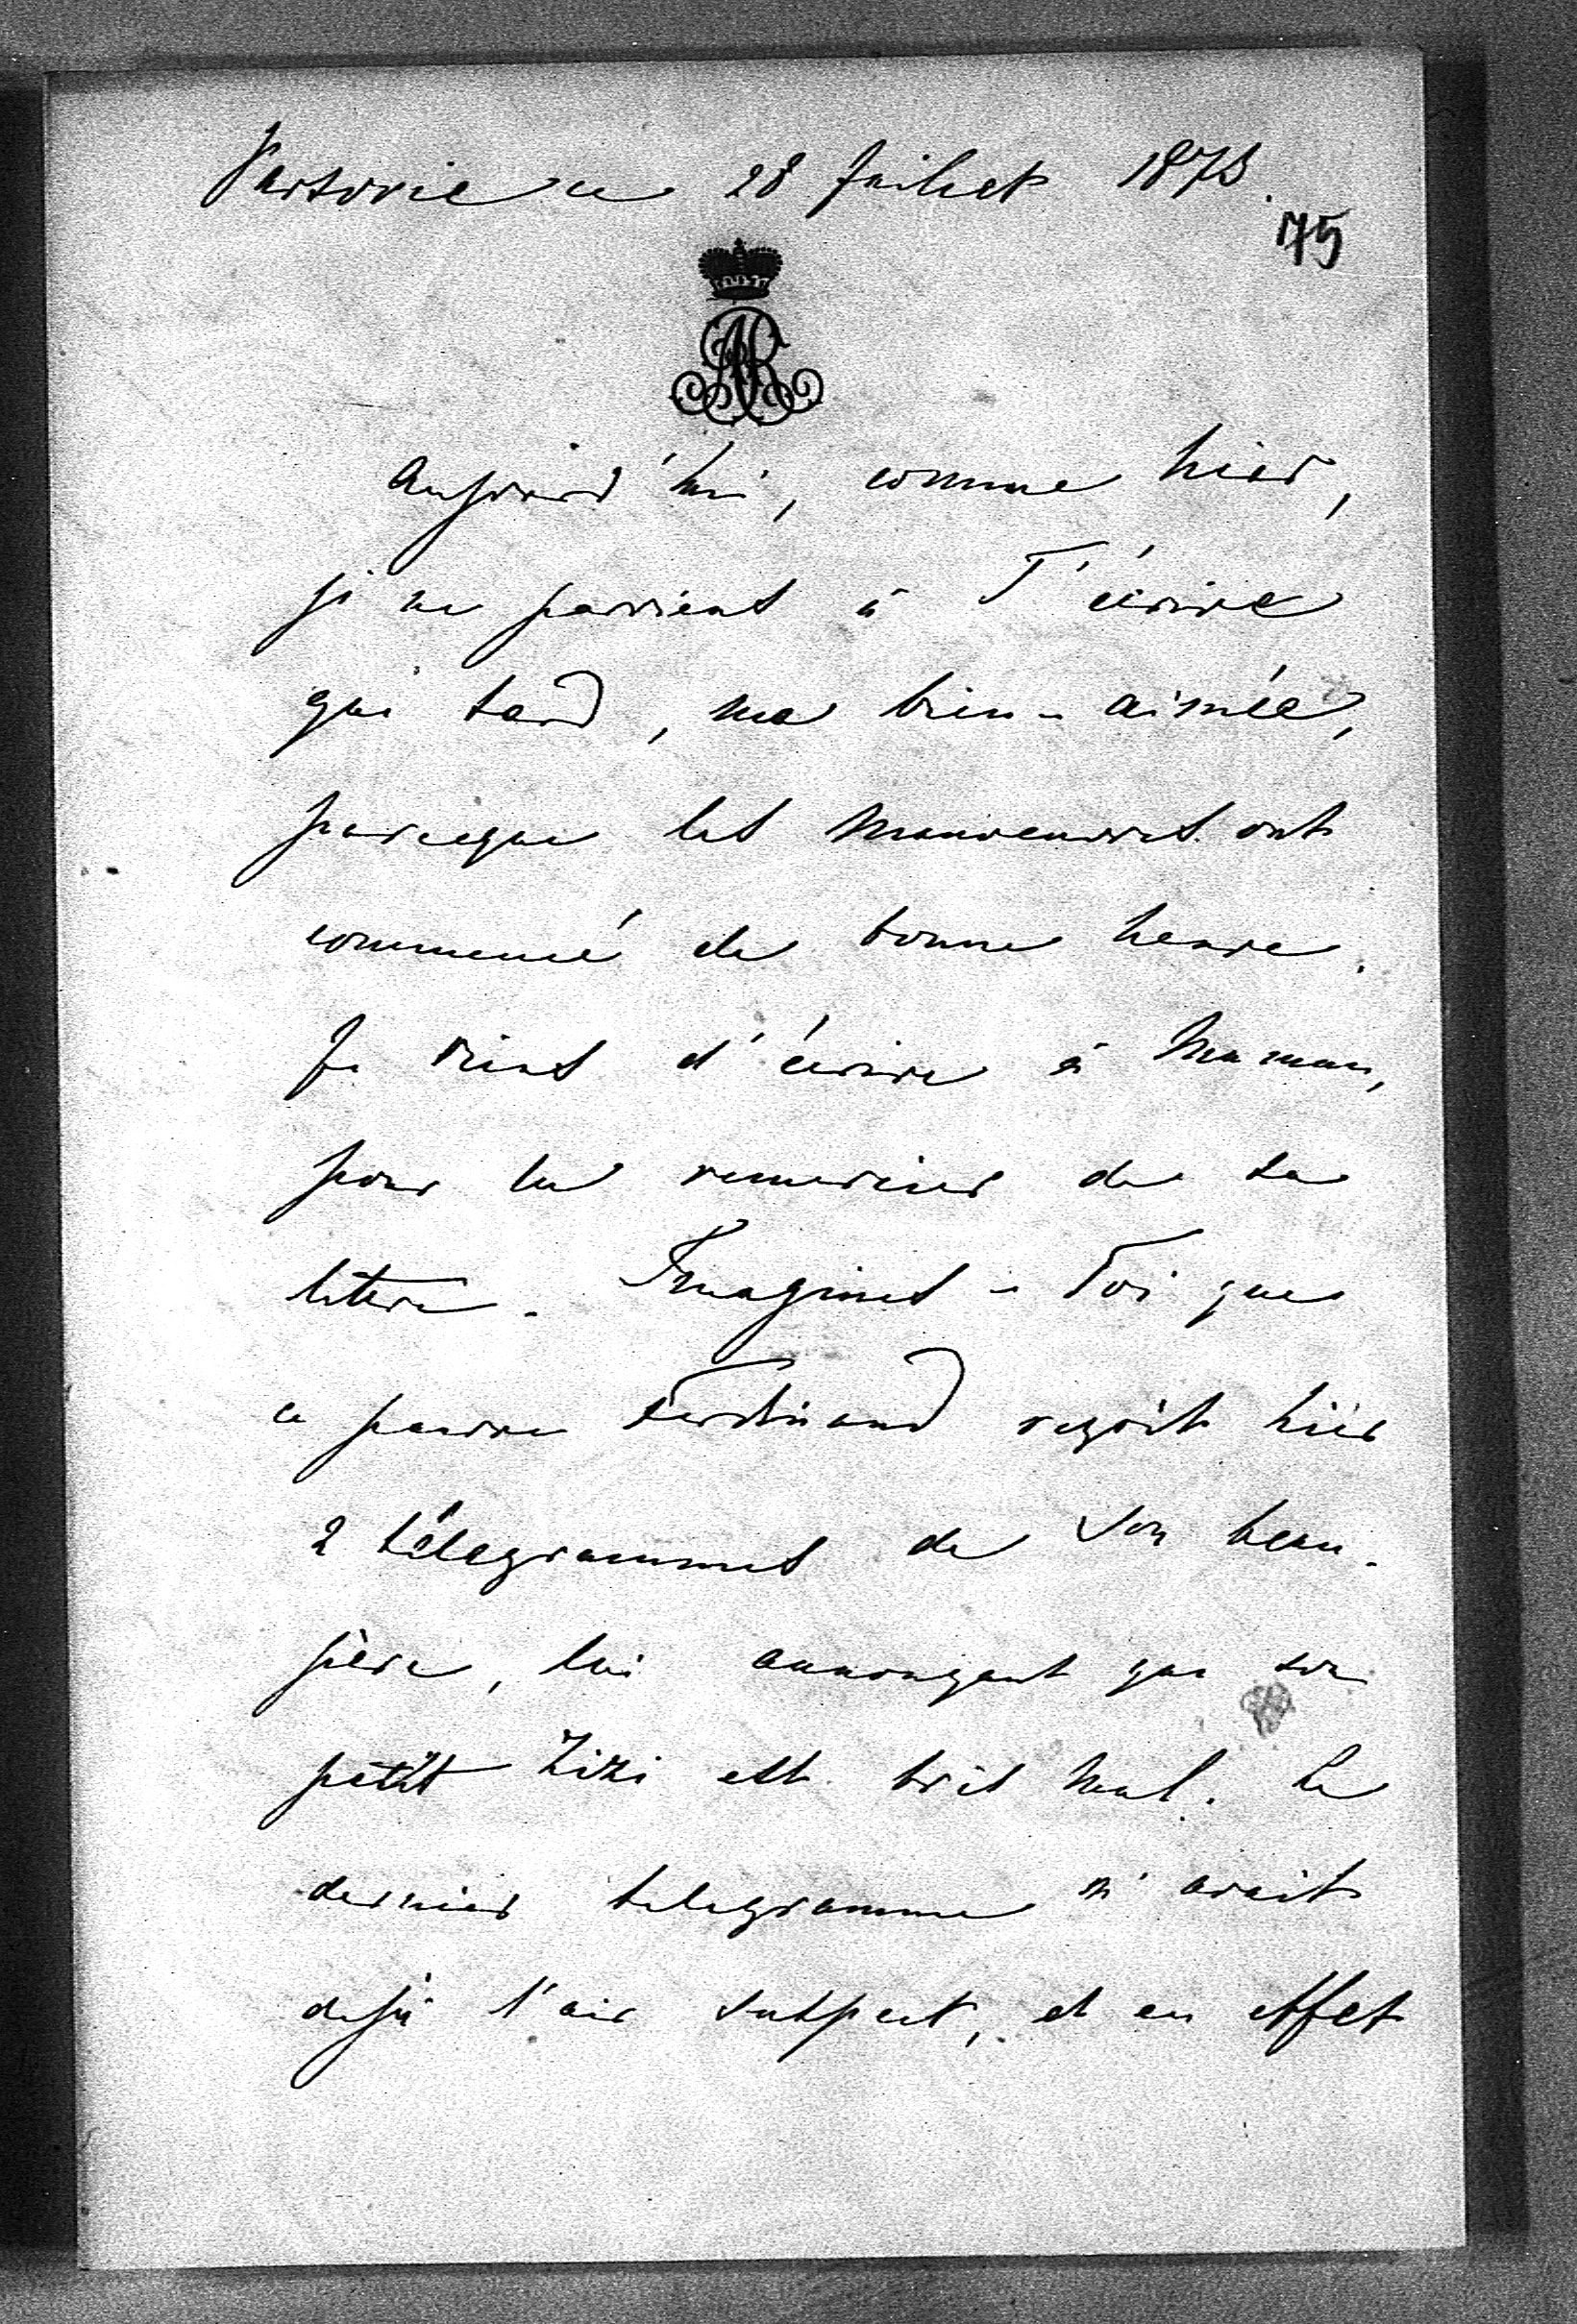 Varsovie ce 28 Juillet 1873.
175
Aujourd'hui, comme hier,
je ne parviens à T'écrire
que tard, ma bien-aimée,
parceque les manoeuvres ont
commencé de bonne heure.
Je viens d'écrire à Maman,
pour la remercier de sa
lettre. Imagines-Toi que
ce pauvre Ferdinand reçoit hier
2 télegrammes de son beau-
père, lui annonçant que son
petit Zizi est très mal. Le
dernier telegramme m'avait
dejà l'air suspect, et en effet